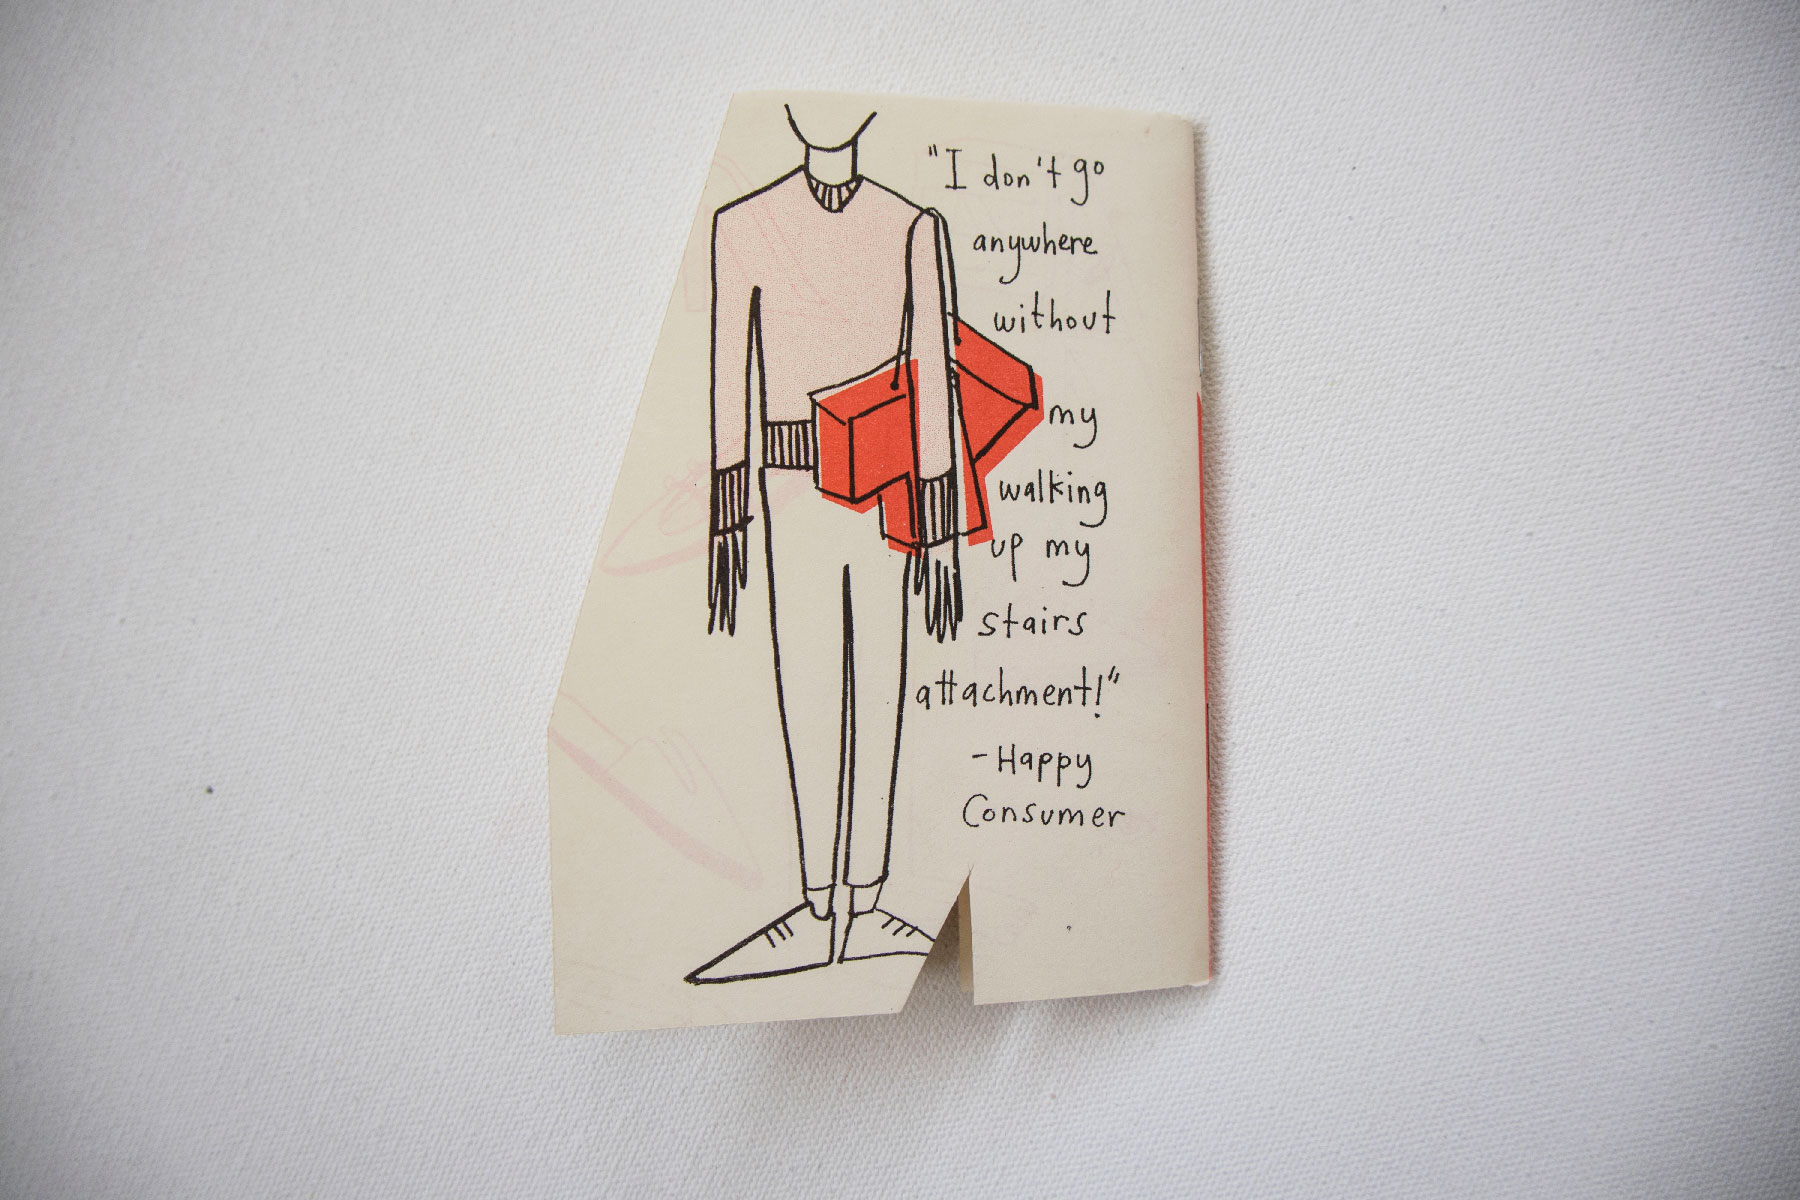 "I don't go
anywhere
without
my
walking
up my
stairs
attachment!"
-Happy
Consumer